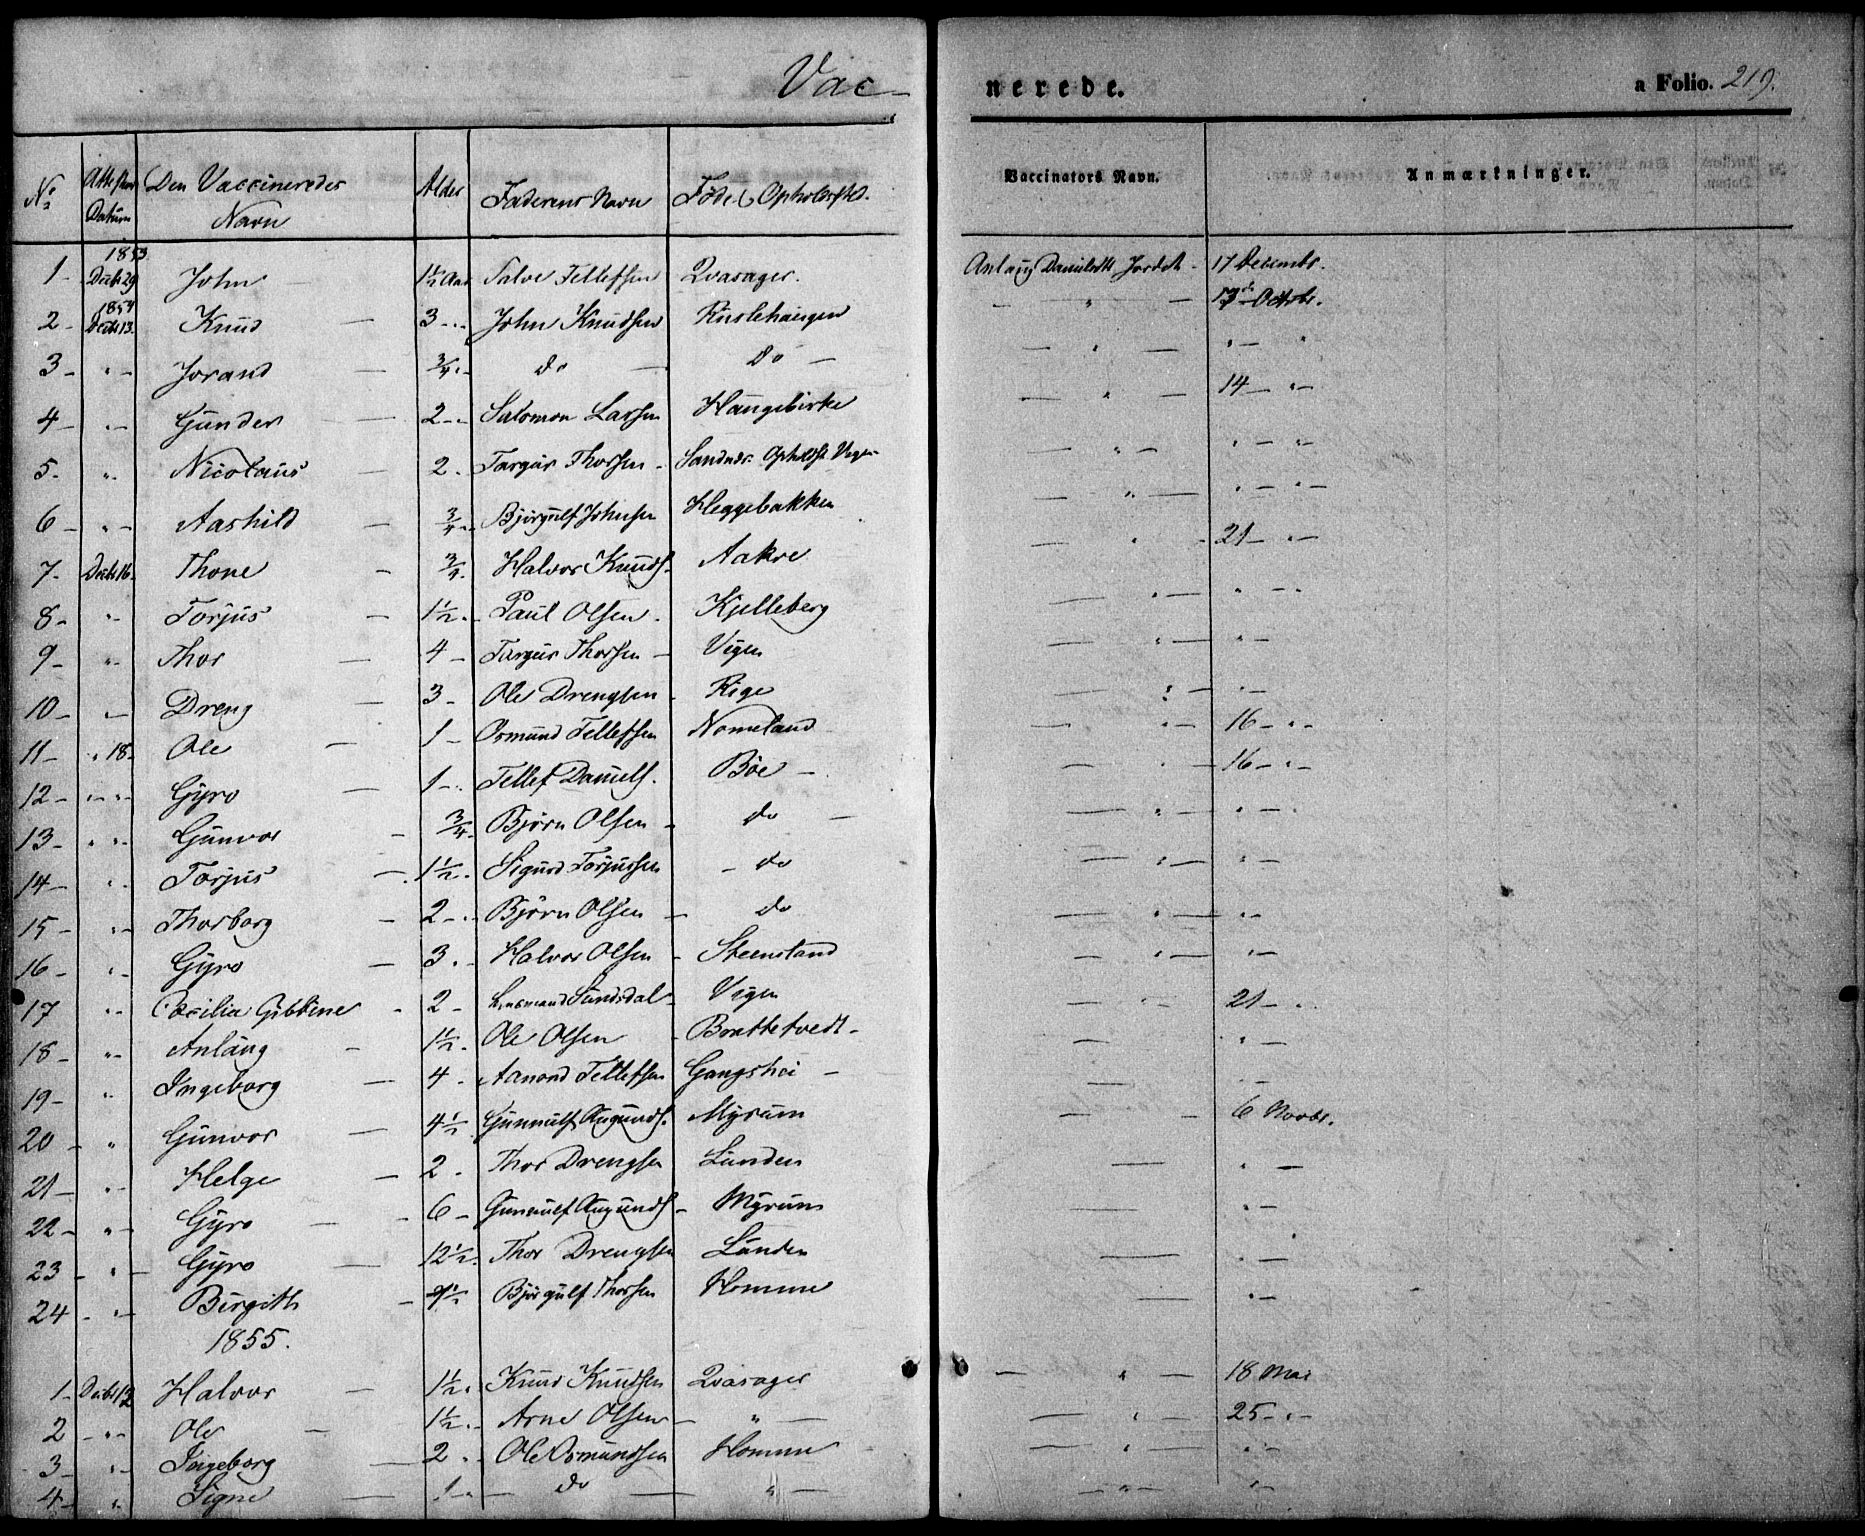 Vac-
nerede.
a Folio. 219.
No Attestens Datum Den Vaccineredes Navn Alder Faderens Navn Føde & Opholdssted. Vaccinators Navn. Anmærkninger.
1853
1- Decbr 29 John 1½ Aar Salve Tellefsen Qvasager. Anlaug Danielsdtr Jordet - 17 Decembr.
1854
2- Decbr 13. Knud — 3 -.. John Knudsen — " — 13de Octobr.
3- " - Jorand — ¾ "- do — do — — " — " — "
4- " - Gunder — 2 -.- Salomon Larsen Haugebirke " — 14 — " —
5- " Nicolaus — 2. Targus Thorsen - Sandnes. Opholdst. Vegen — " — " — " —
6- " - Aashild — ¾ -. Bjørgulf Johnsen Heggebakken — " — " — " —
7- Decbr 16. Thone - ¾. Halvor Knuds. Aakre — " - 21 — " —
8- " - Torjus - 1½. - Paul Olsen. Kjelleberg — " — " - -
9- " - Thor — 4 - Targus Thorsen - Vegen — " — " -
10- " - Dreng — 3 - Ole Drengsen - Rige — " — " -
11- " 18- Ole — 1 - Osmund Tellefsen Nomeland — " — 16 - " -
12- " - " - Gyro — 1 -. Tellef Daniels. Bøe - — " — 16 - " -
13- " " - Gunvor - ¾. Bjørn Olsen - do — — " — " -
14- " - Torjus — 1½. Sigurd Torjussen - do — " — " -
15- " - Thorborg - 2 -. Bjørn Olsen - do — " — " -
16- " - Gyro — 3. - Halvor Olsen - Steensland — " — " -
17 " - Cæcilia Gibbine - 2 - Lensmand Sundsdal - Vegen — " - 21 - "
18- " - Anlaug - 1½. Ole Olsen - Brattetvedt - — " —
19- " Ingeborg — 4 - Aanond Tellefsen Gangshei - — " -
20 - " Gunvor — 4½. Gunnulf Augunds. Myrum — - 6 Novbr.
21 - " - Helge - 2 - Thor Drengsen Lunden — " —
22 - " - Gyro - 6 - Gunnulf Augunds - Myrum — " -
23 - " - Gyro — 12½. Thor Drengsen Lunden — " —
24 " - Birgith - Bjørgulf Thorsen Homme — " -
1855.
1- Decbr 12 Halvor — 1½. Knud Knudsen Qvasager — " — 18 Mai
2 - " - Ole - 1½. - Arne Olsen - " — — " — 25 - " -
3 - " - Ingeborg — 2 - Ole Osmundsen Homme — " — " -
4 - " Signe — 1 - " — do — " — — " — " -